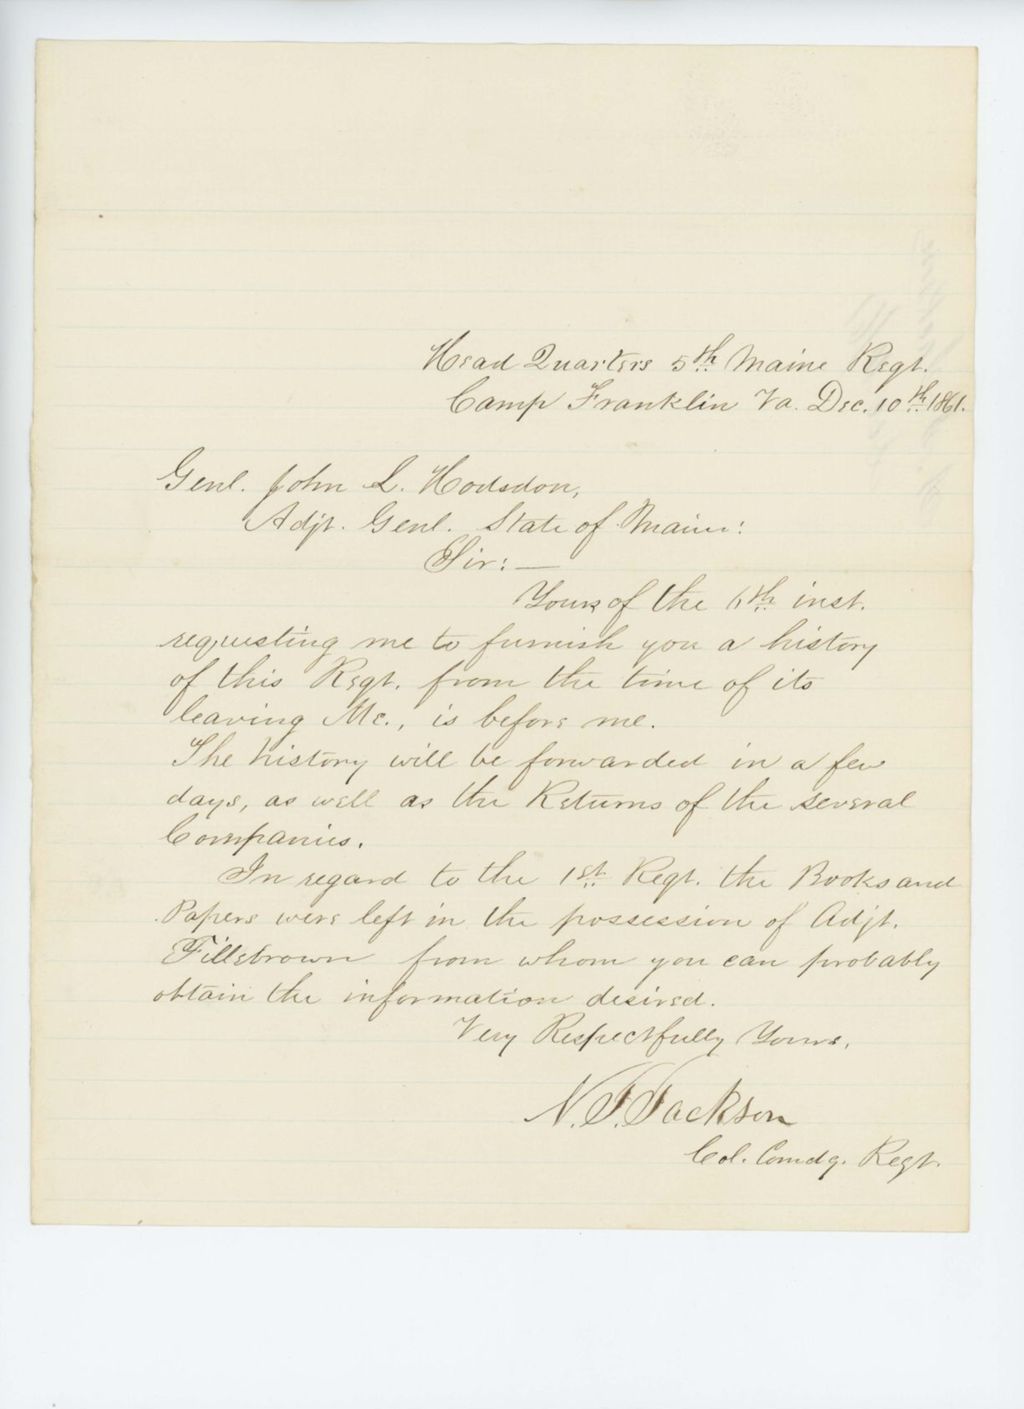 Head Quarters 5th Maine Regt.
Camp Franklin Va. Dec. 10th 1861.
Genl. John L. Hodsdon,
Adjt. Genl. State of Maine:
Sir:—
Yours of the 6th inst.
requesting me to furnish you a history
of this Regt. from the time of its
leaving Me., is before me.
The history will be forwarded in a few
days, as well as the Returns of the several
Companies.
In regard to the 1st Regt. the Books and
Papers were left in the possession of Adjt.
Fillebrown from whom you can probably
obtain the information desired.
Very Respectfully Yours,
N. J. Jackson
Col. Comdg. Regt.